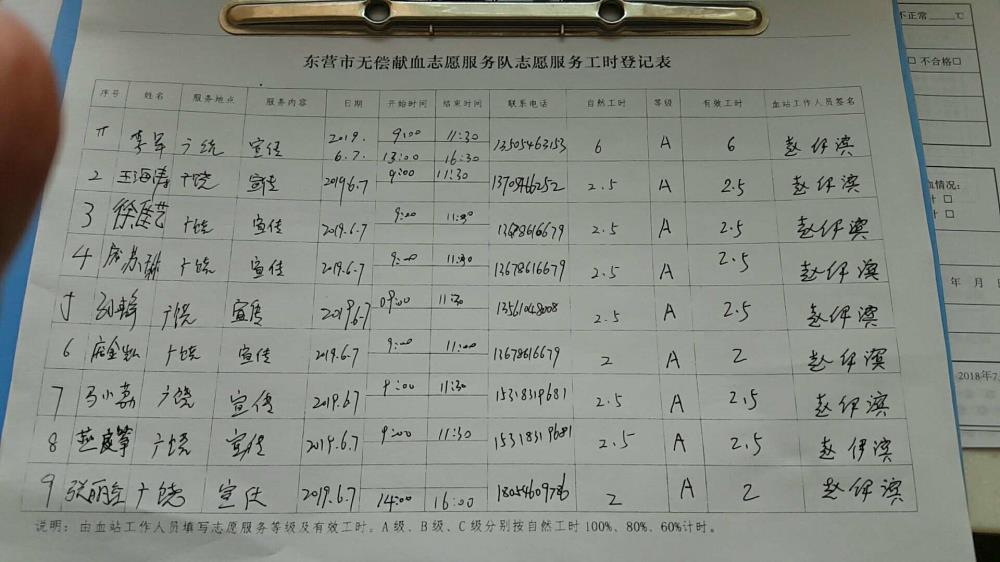 不正常____℃
□ 不合格□
东营市无偿献血志愿服务队志愿服务工时登记表
序号 姓名 服务地点 服务内容 日期 开始时间 结束时间 联系电话 自然工时 等级 有效工时 血站工作人员签名
李军 广饶 宣传 2019.6.7. 9:00 11:30 13505463153 6 A 6 赵伊滨
13:00 16:30
2 王海涛 广饶 宣传 2019.6.7 9:00 11:30 13705466252 2.5 A 2.5 赵伊滨
3 广饶 宣传 2019.6.7 9:00 11:30 13678616679 2.5 A 2.5 赵伊滨
4 广饶 宣传 2019.6.7 9:00 11:30 13678616679 2.5 A 2.5 赵伊滨
5 广饶 宣传 2019.6.7 09:00 11:30 13561048008 2.5 A 2.5 赵伊滨
6 广饶 宣传 2019.6.7 9:00 11:00 13678616679 2 A 2 赵伊滨
7 马小荔 广饶 宣传 2019.6.7 9:00 11:30 15318319681 2.5 A 2.5 赵伊滨
8 广饶 宣传 2019.6.7 9:00 11:30 15318319681 2.5 A 2.5 赵伊滨
9 广饶 宣传 2019.6.7 14:00 16:00 2 A 2 赵伊滨
说明：由血站工作人员填写志愿服务等级及有效工时。A级、B级、C级分别按自然工时100%、80%、60%计时。
血情况：
计 □
计 □
年 月 日
2018年7